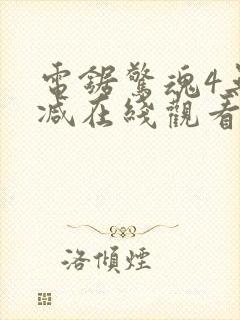 電鋸驚魂4無
減在綫觀看
洛傾煙